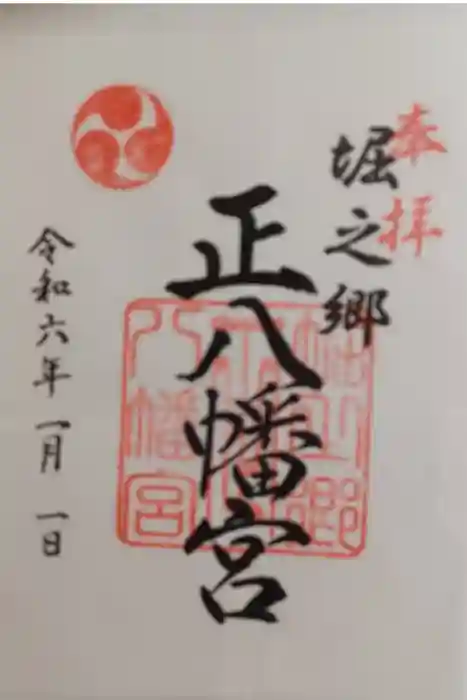 奉拝
堀之郷
正八幡宮
令和六年一月一日